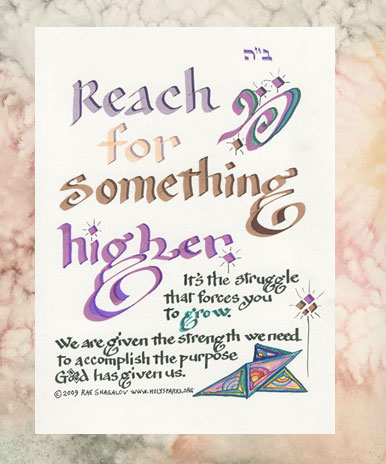 ב"ה
Reach
for
something
higher.
It's the struggle
that forces you
to grow.
We are given the strength we need
to accomplish the purpose
God has given us.
© 2009 Rae Shagalov www.holysparks.org